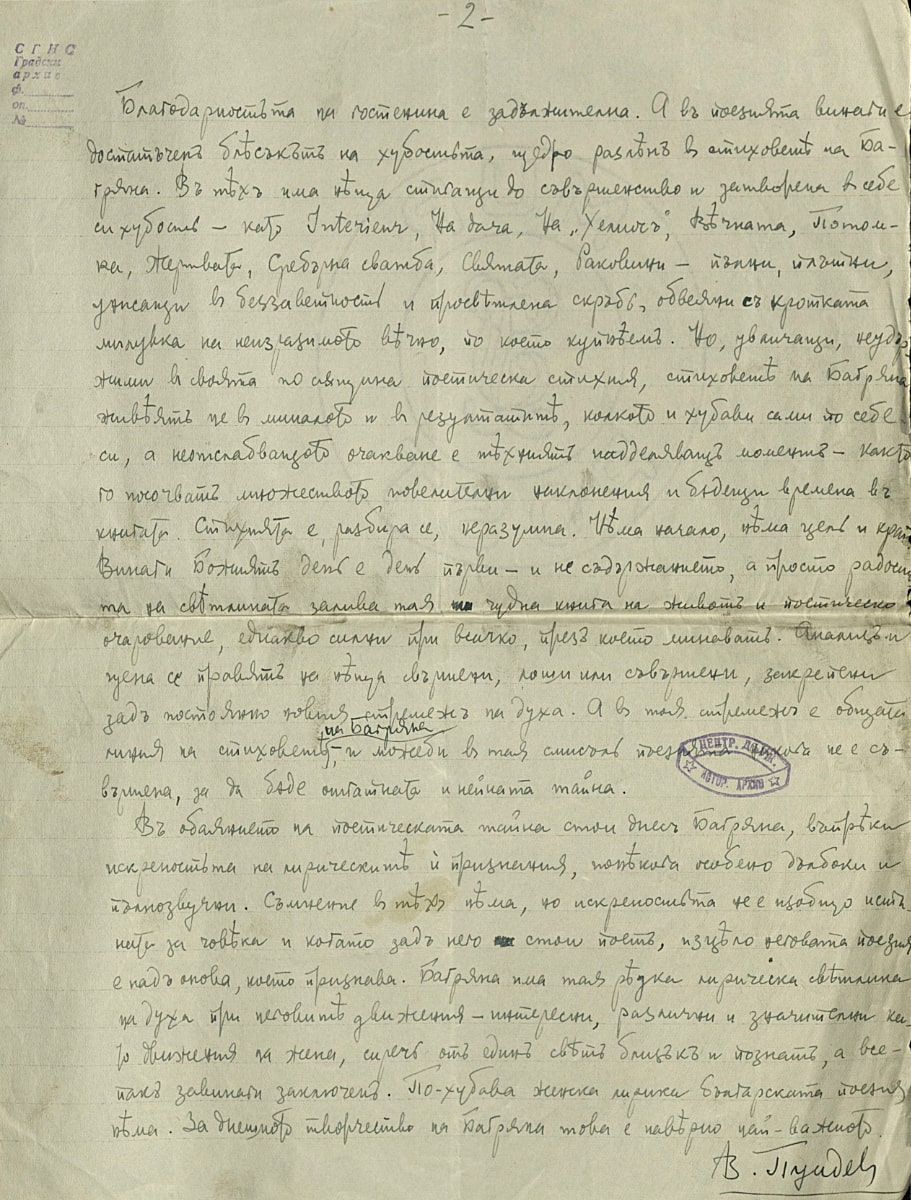 -2-
СГНС
Градски
архив
ф.
оп.
№
Благодарностьта на гостенина е задължителна. А въ поезията винаги е
достатъченъ блѣсъкътъ на хубостьта, щедро разлѣнъ в стиховетѣ на Ба-
гряна. Въ тѣхъ има нѣща стигащи до съвършенство и затворена в себе
си хубость – като Interieur, На дача, На „Хелиосъ", Вѣчната, Потом-
ка, Жертвата, Сребърна сватба, Святата, Раковини – пълни, плътни,
унисащи в беззаветность и просвѣтлена скръбь, обвеяни съ кротката
милувка на неизразимото вѣчно, по което купнѣемъ. Но, увличащи, неудър
жими в своята по същина поетическа стихия, стиховетѣ на Багряна
живѣятъ не в миналото и в резултатитѣ, колкото и хубави сами по себе
си, а неотслабващото очакване е тѣхниятъ надделяващъ моментъ – както
го посочватъ множеството повелителни наклонения и бѫдещи времена въ
книгата. Стихията е, разбира се, неразумна. Нѣма начало, нѣма цель и край.
Винаги Божиятъ день е день първи – и не съдържанието, а просто радость
та на свѣтлината залива тая чудна книга на животъ и поетическо
очарование, еднакво силни при всичко, презъ което минаватъ. Анализъ и
цена се правятъ на нѣща свършени, лоши или съвършени, закрепени
задъ постоянно новия стремежъ на духа. А в тоя стремежъ е общата
линия на стиховетѣ на Багряна, и можеби в тая смисъль поезията никога не е съ-
вършена, за да бѫде останата и нейната тайна.
ЦЕНТР. ДЪРЖ.
ИСТОР. АРХИВ
Въ обаянието на поетическата тайна стои днесъ Багряна, въпрѣки
искреностьта на лирическитѣ ѝ признания, понѣкога особено дълбоки и
пълнозвучни. Съмнение в тѣхъ нѣма, но искреностьта не е изобщо исти-
ната за човѣка и когато задъ него стои поетъ, изцѣло неговата поезия
е надъ онова, което признава. Багряна има тая рѣдка лирическа свѣтлина
на духа при неговитѣ движения – интересни, различни и значителни ка-
то движения на жена, сиречь отъ единъ свѣтъ близъкъ и познатъ, а все-
пакъ завинаги заключенъ. По-хубава женска лирика българската поезия
нѣма. За днешното творчество на Багряна това е навѣрно най-важното.
В. Пундев